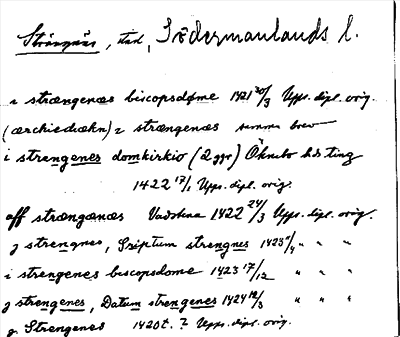 Strängnäs, stad, Södermanlands l.
i strængenæs biscopsdøme 1421 20/3 Upps. dipl. orig.
(ærchiediækn) i strængenæs samma brev
i strengenes domkirkio (2 ggr) Öknebo hds ting
1422 17/1 Upps. dipl. orig.
aff strængænæs Vadstena 1422 24/3 Upps. dipl. orig.
j strengnes, Scriptum strengnes 1423 /4 " " "
i strengenes biscopsdome 1423 17/12 " " "
j strengenes, Datum strengenes 1424 12/3 " " "
g. Strengenes 1420t. ? Upps. dipl. orig.